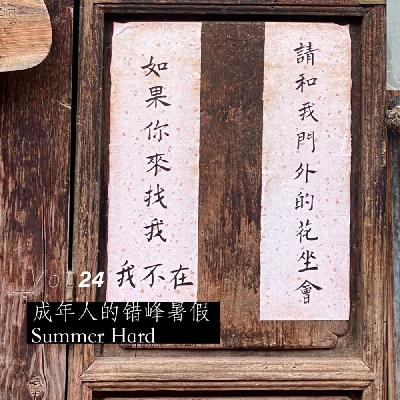 如果你來找我
我不在
請和我門外的花坐會
24
成年人的错峰暑假
Summer Hard